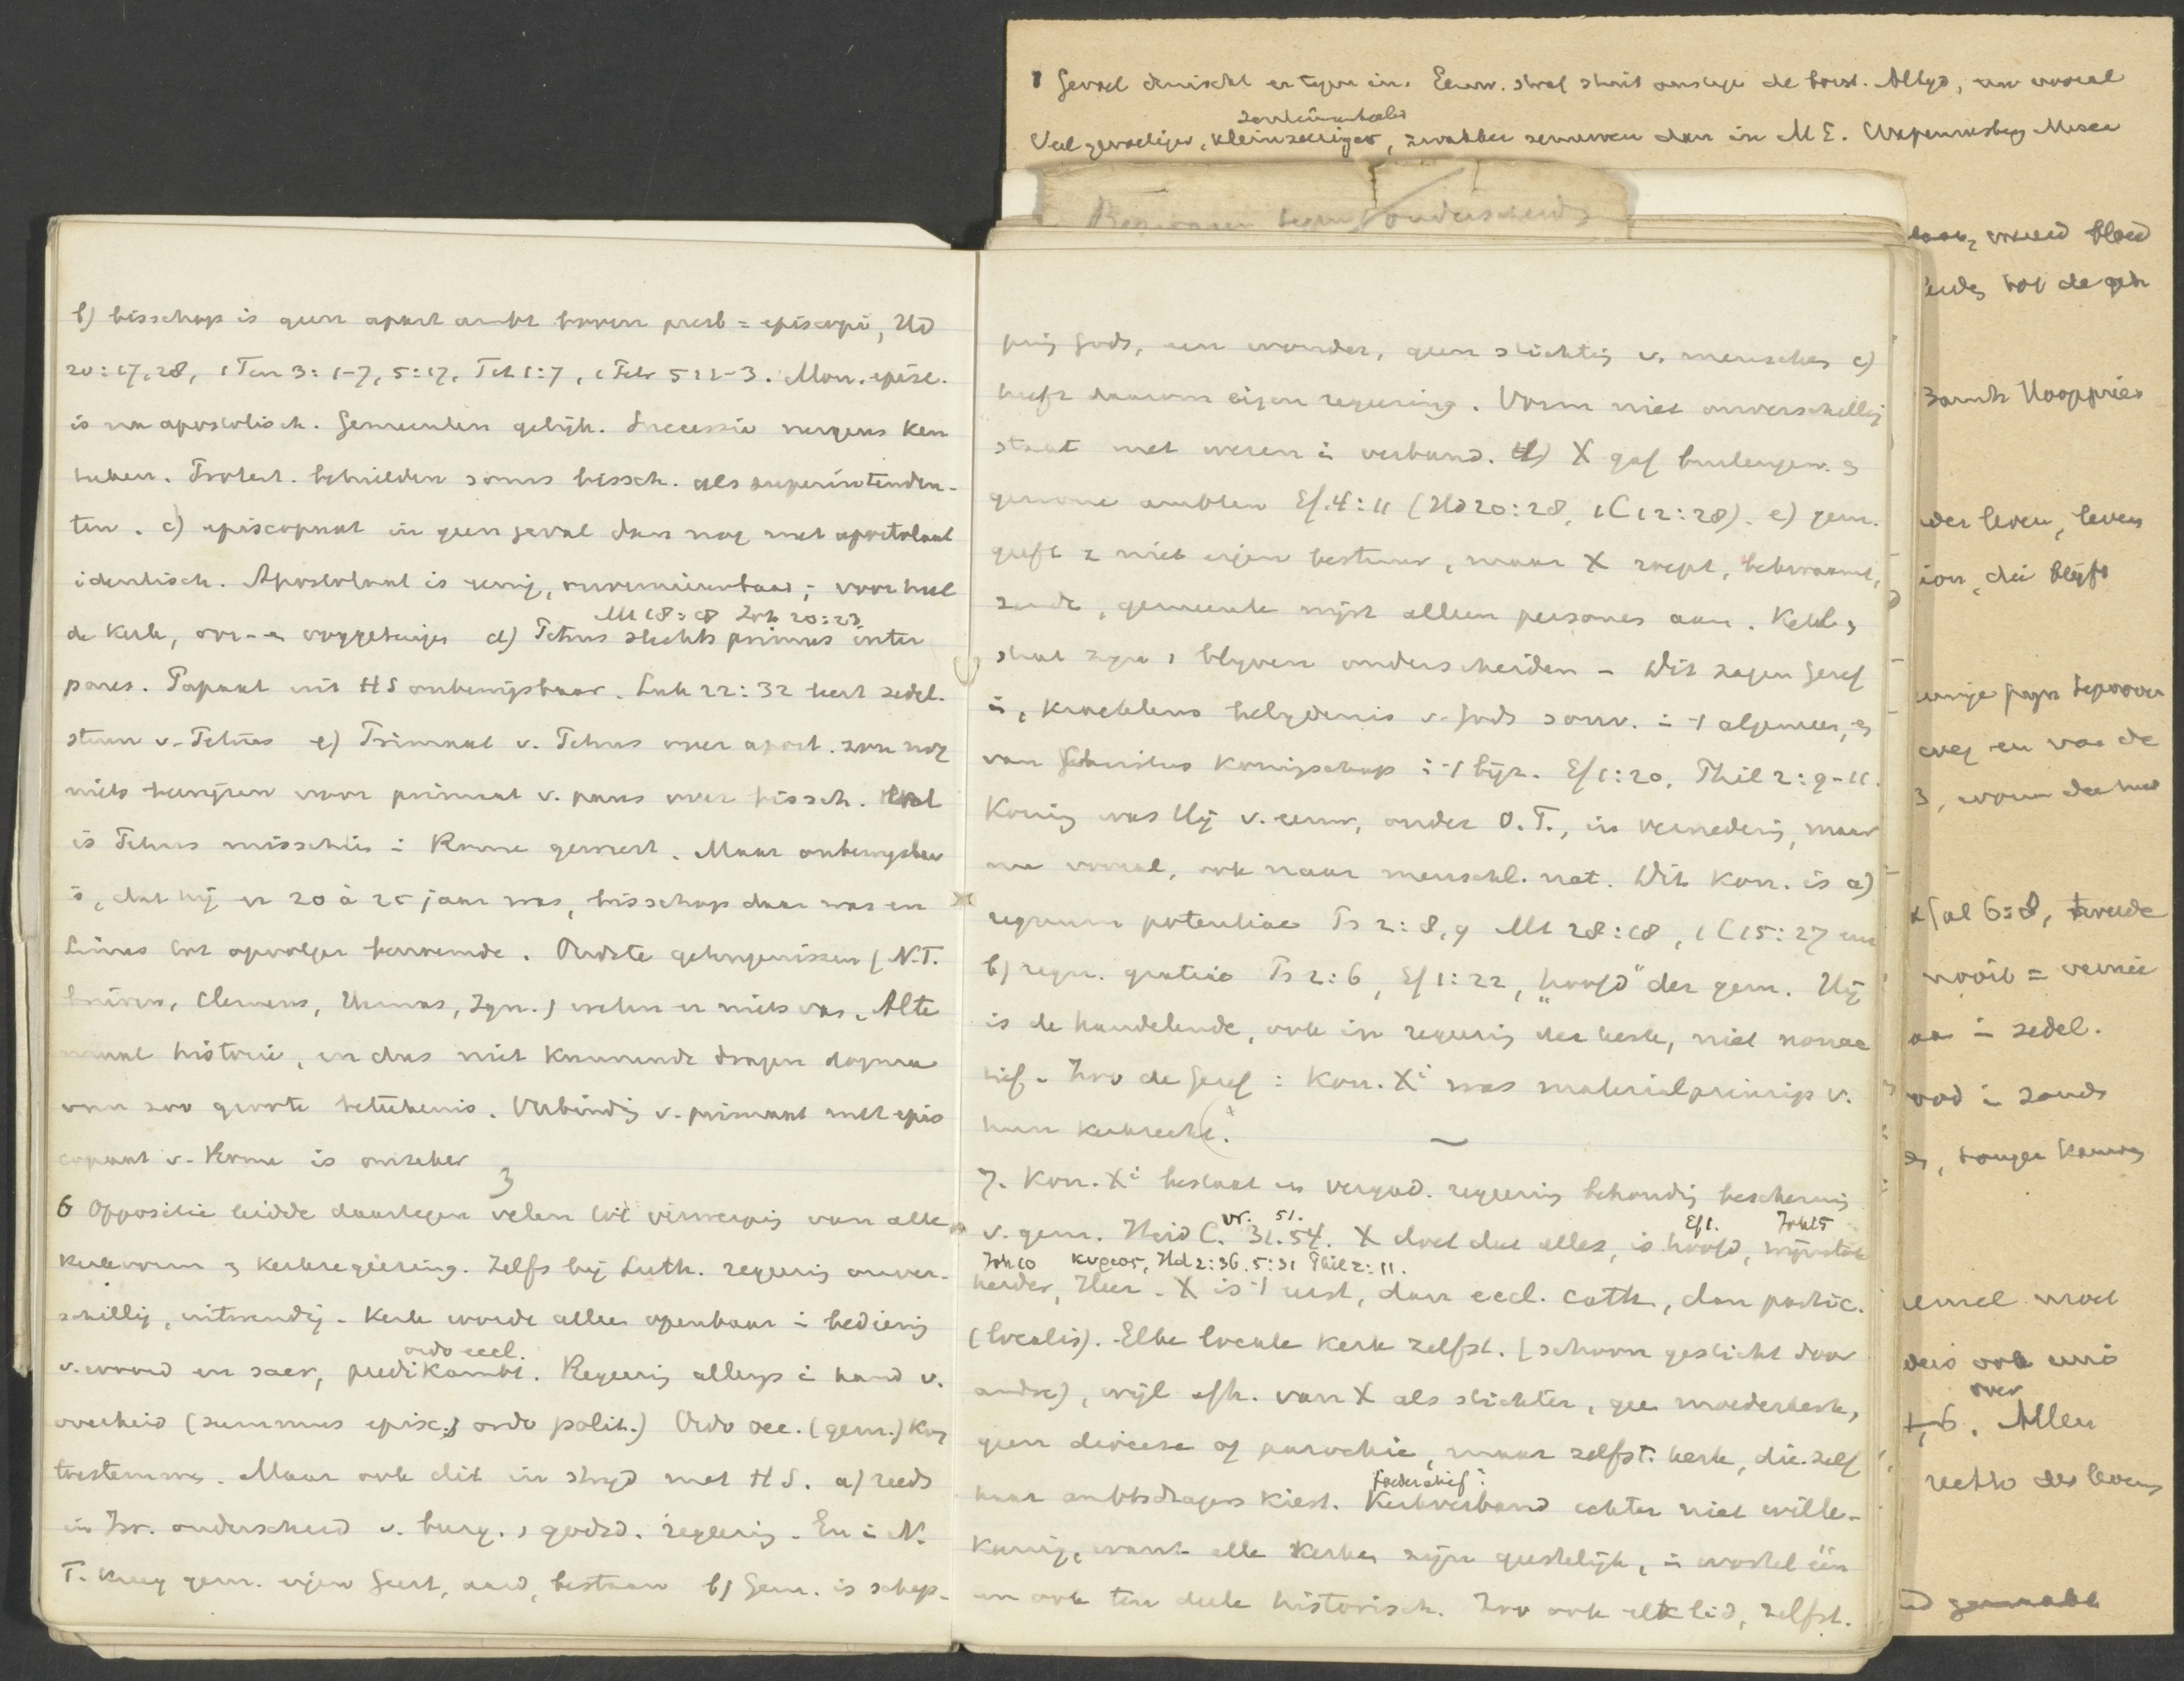 1 Gevoel er tegen in. Eeuw. straf stuit ons tegen de borst. Altyd, nu vooral
Veel gevoeliger, kleinzeeriger, zwakker zenuwen dan in M E.
onderscheid
b) bisschop is geen apart ambt boven presb = episcopi, Hd
20:17,28, 1 Tim 3:1-7, 5:17, Tit 1:7, 1 Petr 5:1-3. Mon. episc.
is na apostolisch. Gemeenten gelijk. Successie nergens ken
teken. Protest. behielden soms bissch. als superintenden-
ten. c) episcopaat in geen geval dan nog met apostolaat
identisch. Apostolaat is eenig, onvernieuwbaar, voor heel
Mt 18:18 Joh 20:23
de kerk, oor- en ooggetuigen d) Petrus slechts primus inter
pares. Papaat uit HS onbewijsbaar. Luk 22:32 leert zedel.
steun v. Petrus e) Primaat v. Petrus over apost. zou nog
niets bewijzen voor primaat v. paus over bissch. Wel
is Petrus misschien i Rome geweest. Maar onbewijsbaar
is, dat hij er 20 à 25 jaar was, bisschop daar was en
Linus tot opvolger benoemde. Oudste getuigenissen (N.T.
brieven, Clemens, Hermas, Ign.) weten er niets van. Alte
maal historie, en dus niet kunnende dragen dogma
van zoo groote beteekenis. Verbindg v. primaat met epis
copaat v. Rome is onzeker
3
6 Oppositie leidde daartegen velen tot verwerpig van alle
kerkvorm en kerkregeering. Zelfs bij Luth. regeerig onver-
schillig, uitwendig. Kerk wordt alleen openbaar i bedienig
ordo eccl.
v. woord en sacr, predikambt. Regeerig allengs i hand v.
overheid (summus episc.; ordo polit.) Ordo oec. (gem.) kon
toestemmen. Maar ook dit in stryd met HS. a) reeds
in Isr. onderscheid v. burg. en godsd. regeerig. En i N.
T. kreeg gem. eigen Geest, aard, bestaan b) Gem. is schep-
ping Gods, een wonder, geen stichtig v. menschen c)
heeft daarom eigen regeering. Vorm niet onverschillig
staat met wezen i verband. d) X gaf buitengew. en
gewone ambten Ef. 4:11 (Hd 20:28, 1 C 12:28). e) gem.
geeft z niet eigen bestuur, maar X roept, bekwaamt,
zendt, gemeente wijst alleen personen aan. Kerk en
staat zyn en blyven onderscheiden – Dit zagen Geref
in, krachtens belydenis v. Gods souv. i 't algemeen, en
van Christus koningschap i 't bijz. Ef 1:20, Phil 2:9-11.
Koning was Hij v. eeuw, onder O.T., in vernederig, maar
nu vooral, ook naar menschl. nat. Dit Kon. is a)
regnum potentiae Ps 2:8,9 Mt 28:18, 1 C 15:27 en
b) regn. gratiae Ps 2:6, Ef 1:22, „hoofd" der gem. Hij
is de handelende, ook in regeerig der kerk, niet nonac
tief. Zoo de Geref: Kon. Xi was materialprincip v.
hun kerkrecht.
7. Kon. Xi bestaat in vergad. regeerig behoudig beschermig
vr. 51. Ef 1. Joh 15
v. gem. Heid C. 31. 54. X doet dat alles, is hoofd, wijnstok
Joh 10 κυριος, Hd 2:36. 5:31 Phil 2:11.
herder, Heer. X is 't eerst, dan eccl. cath, dan partic.
(localis). Elke locale kerk zelfst. (schoon gesticht door
andre), wijl afh. van X als stichter, gee moederkerk,
geen diocese of parochie, maar zelfst. kerk, die zelf
foederatief:
haar ambtsdragers kiest. Kerkverband echter niet wille-
keurig, want alle kerken zijn geestelijk, i wortel één
en ook ten deele historisch. Zoo ook elk lid, zelfst.
bloed
tot de
der leven, leven
ion, die blijft
weg en van de
Gal 6:8, tweede
nooit =
i zedel.
6. Allen
over